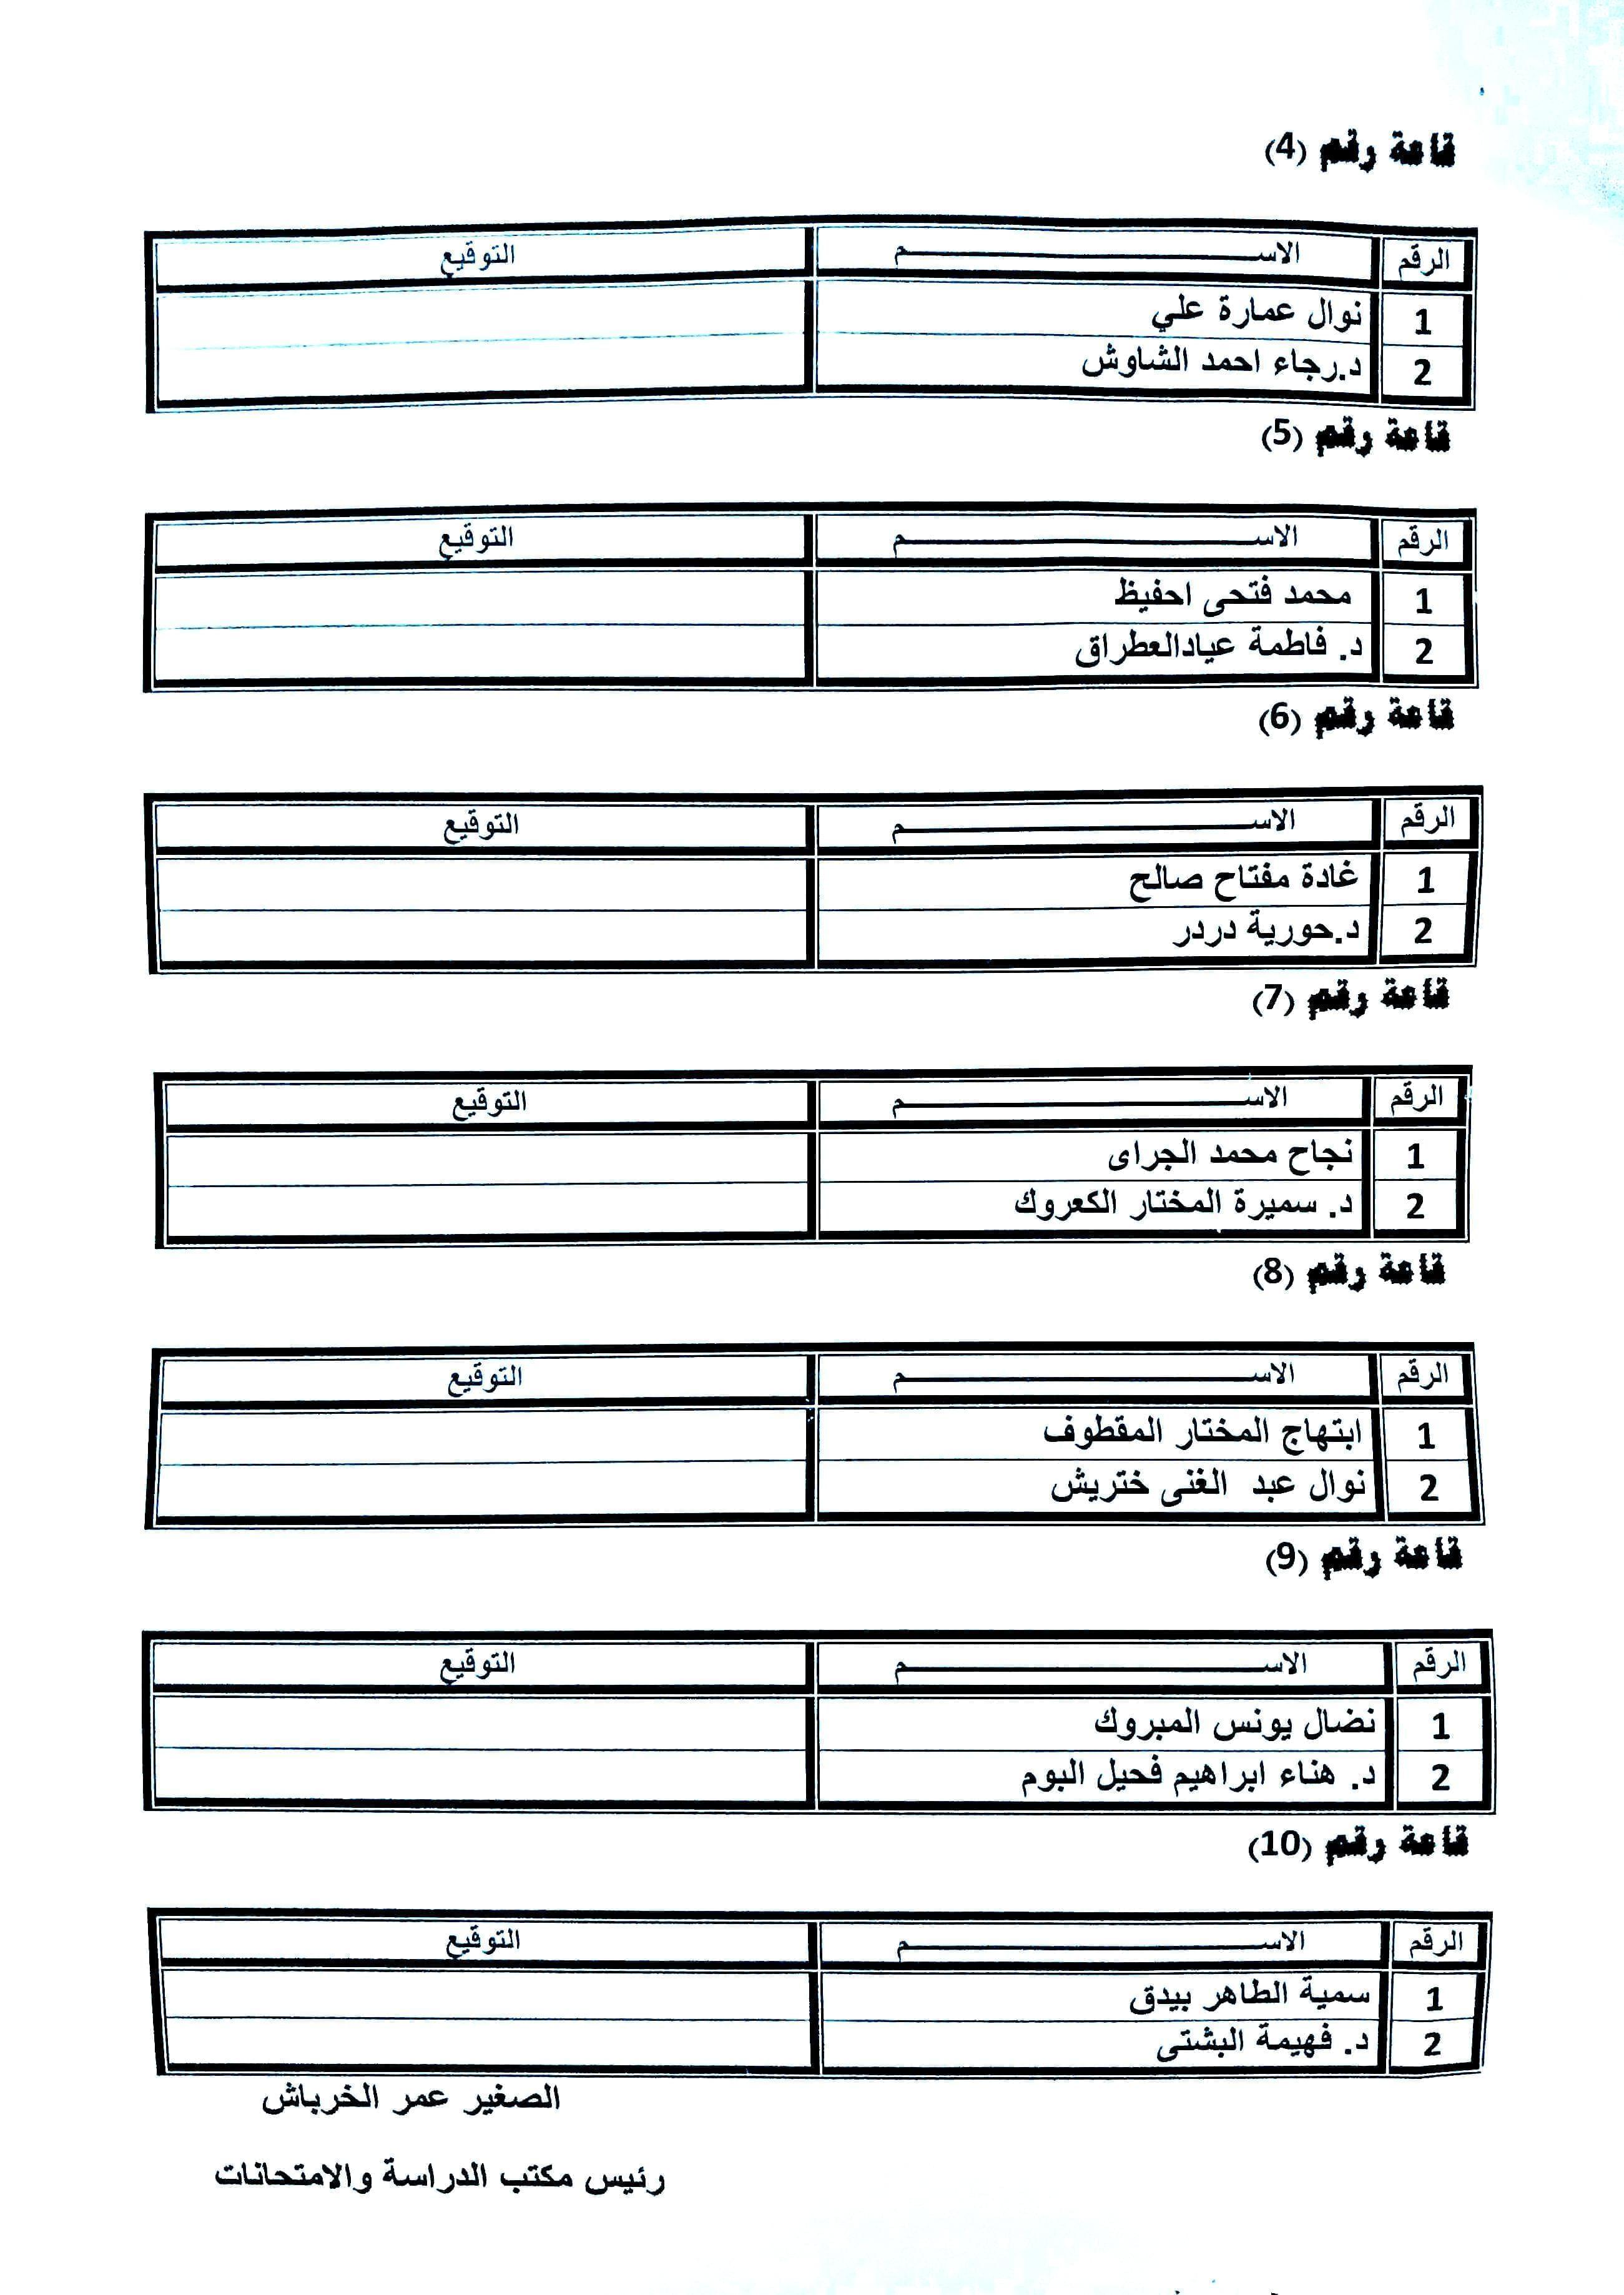 قاعة رقم (4)
الرقم الاســـــــــــــــــــم التوقيع
1 نوال عمارة علي
2 د.رجاء احمد الشاوش
قاعة رقم (5)
الرقم الاســـــــــــــــــــم التوقيع
1 محمد فتحى احفيظ
2 د. فاطمة عيادالعطراق
قاعة رقم (6)
الرقم الاســـــــــــــــــــم التوقيع
1 غادة مفتاح صالح
2 د.حورية دردر
قاعة رقم (7)
الرقم الاســـــــــــــــــــم التوقيع
1 نجاح محمد الجراى
2 د. سميرة المختار الكعروك
قاعة رقم (8)
الرقم الاســـــــــــــــــــم التوقيع
1 ابتهاج المختار المقطوف
2 نوال عبد الغنى ختريش
قاعة رقم (9)
الرقم الاســـــــــــــــــــم التوقيع
1 نضال يونس المبروك
2 د. هناء ابراهيم فحيل البوم
قاعة رقم (10)
الرقم الاســـــــــــــــــــم التوقيع
1 سمية الطاهر بيدق
2 د. فهيمة البشتى
الصغير عمر الخرباش
رئيس مكتب الدراسة والامتحانات